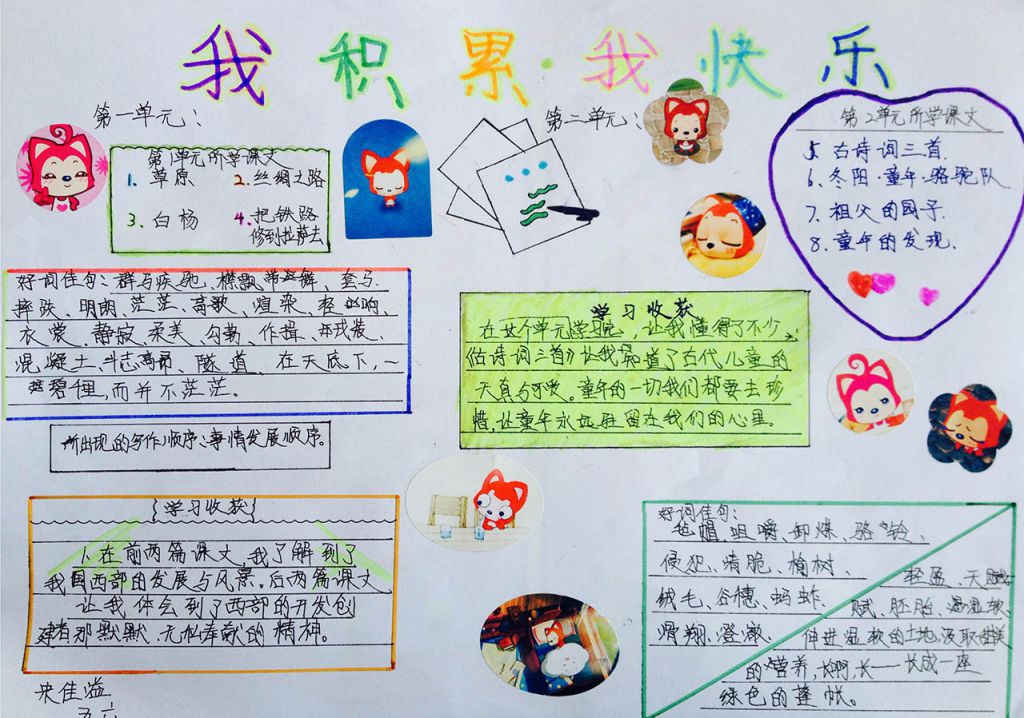 我积累·我快乐
第一单元：
第1单元所学课文
1. 草原 2. 丝绸之路
3. 白杨 4. 把铁路
修到拉萨去
好词佳句：群马疾驰、襟飘带舞、套马、
摔跤、明朗、茫茫、高歌、渲染、
衣裳、静寂、柔美、勾勒、作揖、戎装、
混凝土、斗志高昂、隧道 在天底下，一
碧千里，而并不茫茫。
所出现的写作顺序：事情发展顺序。
{学习收获}
1、在前两篇课文，我了解到了
我国西部的发展与风景。后两篇课文
让我体会到了西部的开发创
建者那默默无私奉献的精神。
第二单元：
第2单元所学课文
5. 古诗词三首.
6、冬阳·童年·骆驼队
7. 祖父的园子.
8. 童年的发现.
学习收获
在这个单元学完，让我懂得了不少，
《古诗词三首》让我知道了古代儿童的
天真与可爱。童年的一切我们都要去珍
惜，让童年永远驻留在我们的心里。
好词佳句：
毡帽、咀嚼、卸煤、骆铃、
侵犯、清脆、榆树、
绒毛、谷穗、蚂蚱、
滑翔、澄澈、
轻盈、天赋
赋、胚胎、温软、
伸进温软的土地汲取甜美
的营养，长啊，长——长成一座
绿色的蓬帐。
佳溢
五六